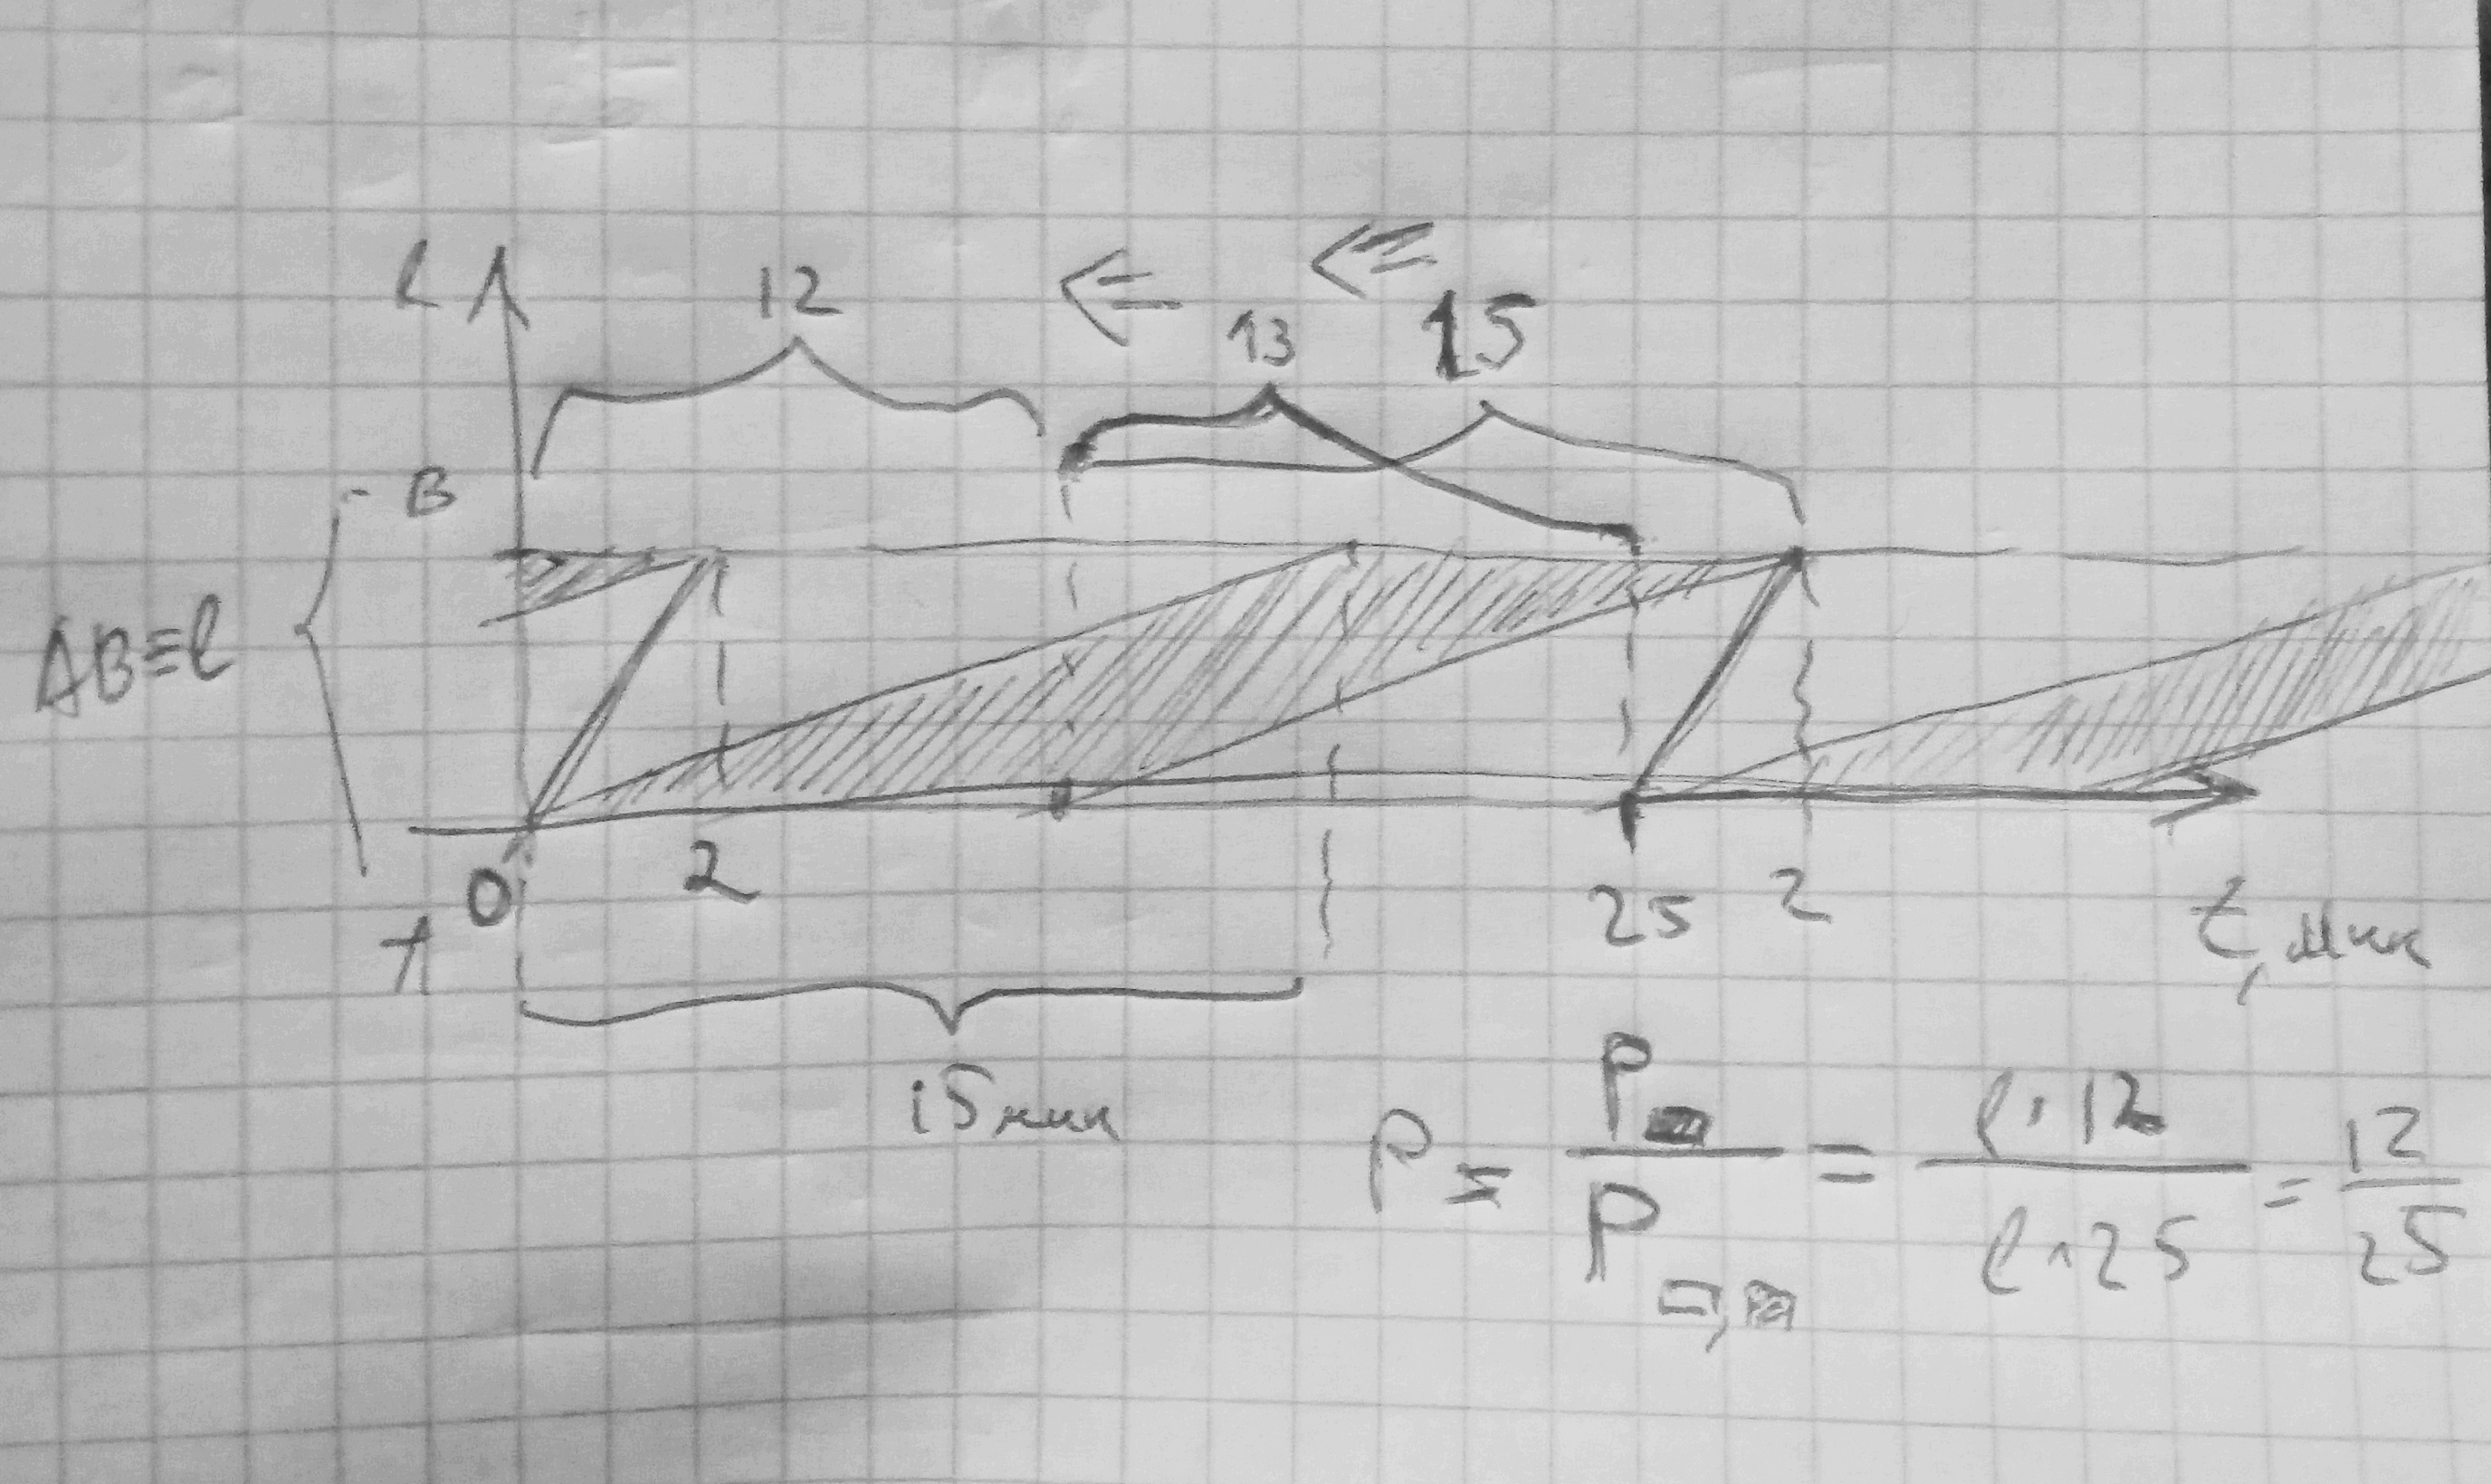 l 12 <= 13 <= 15
B
AB≡l
0 2 25 2
A
t, мин
15 мин
P = P / P = l · 12 / l · 25 = 12 / 25